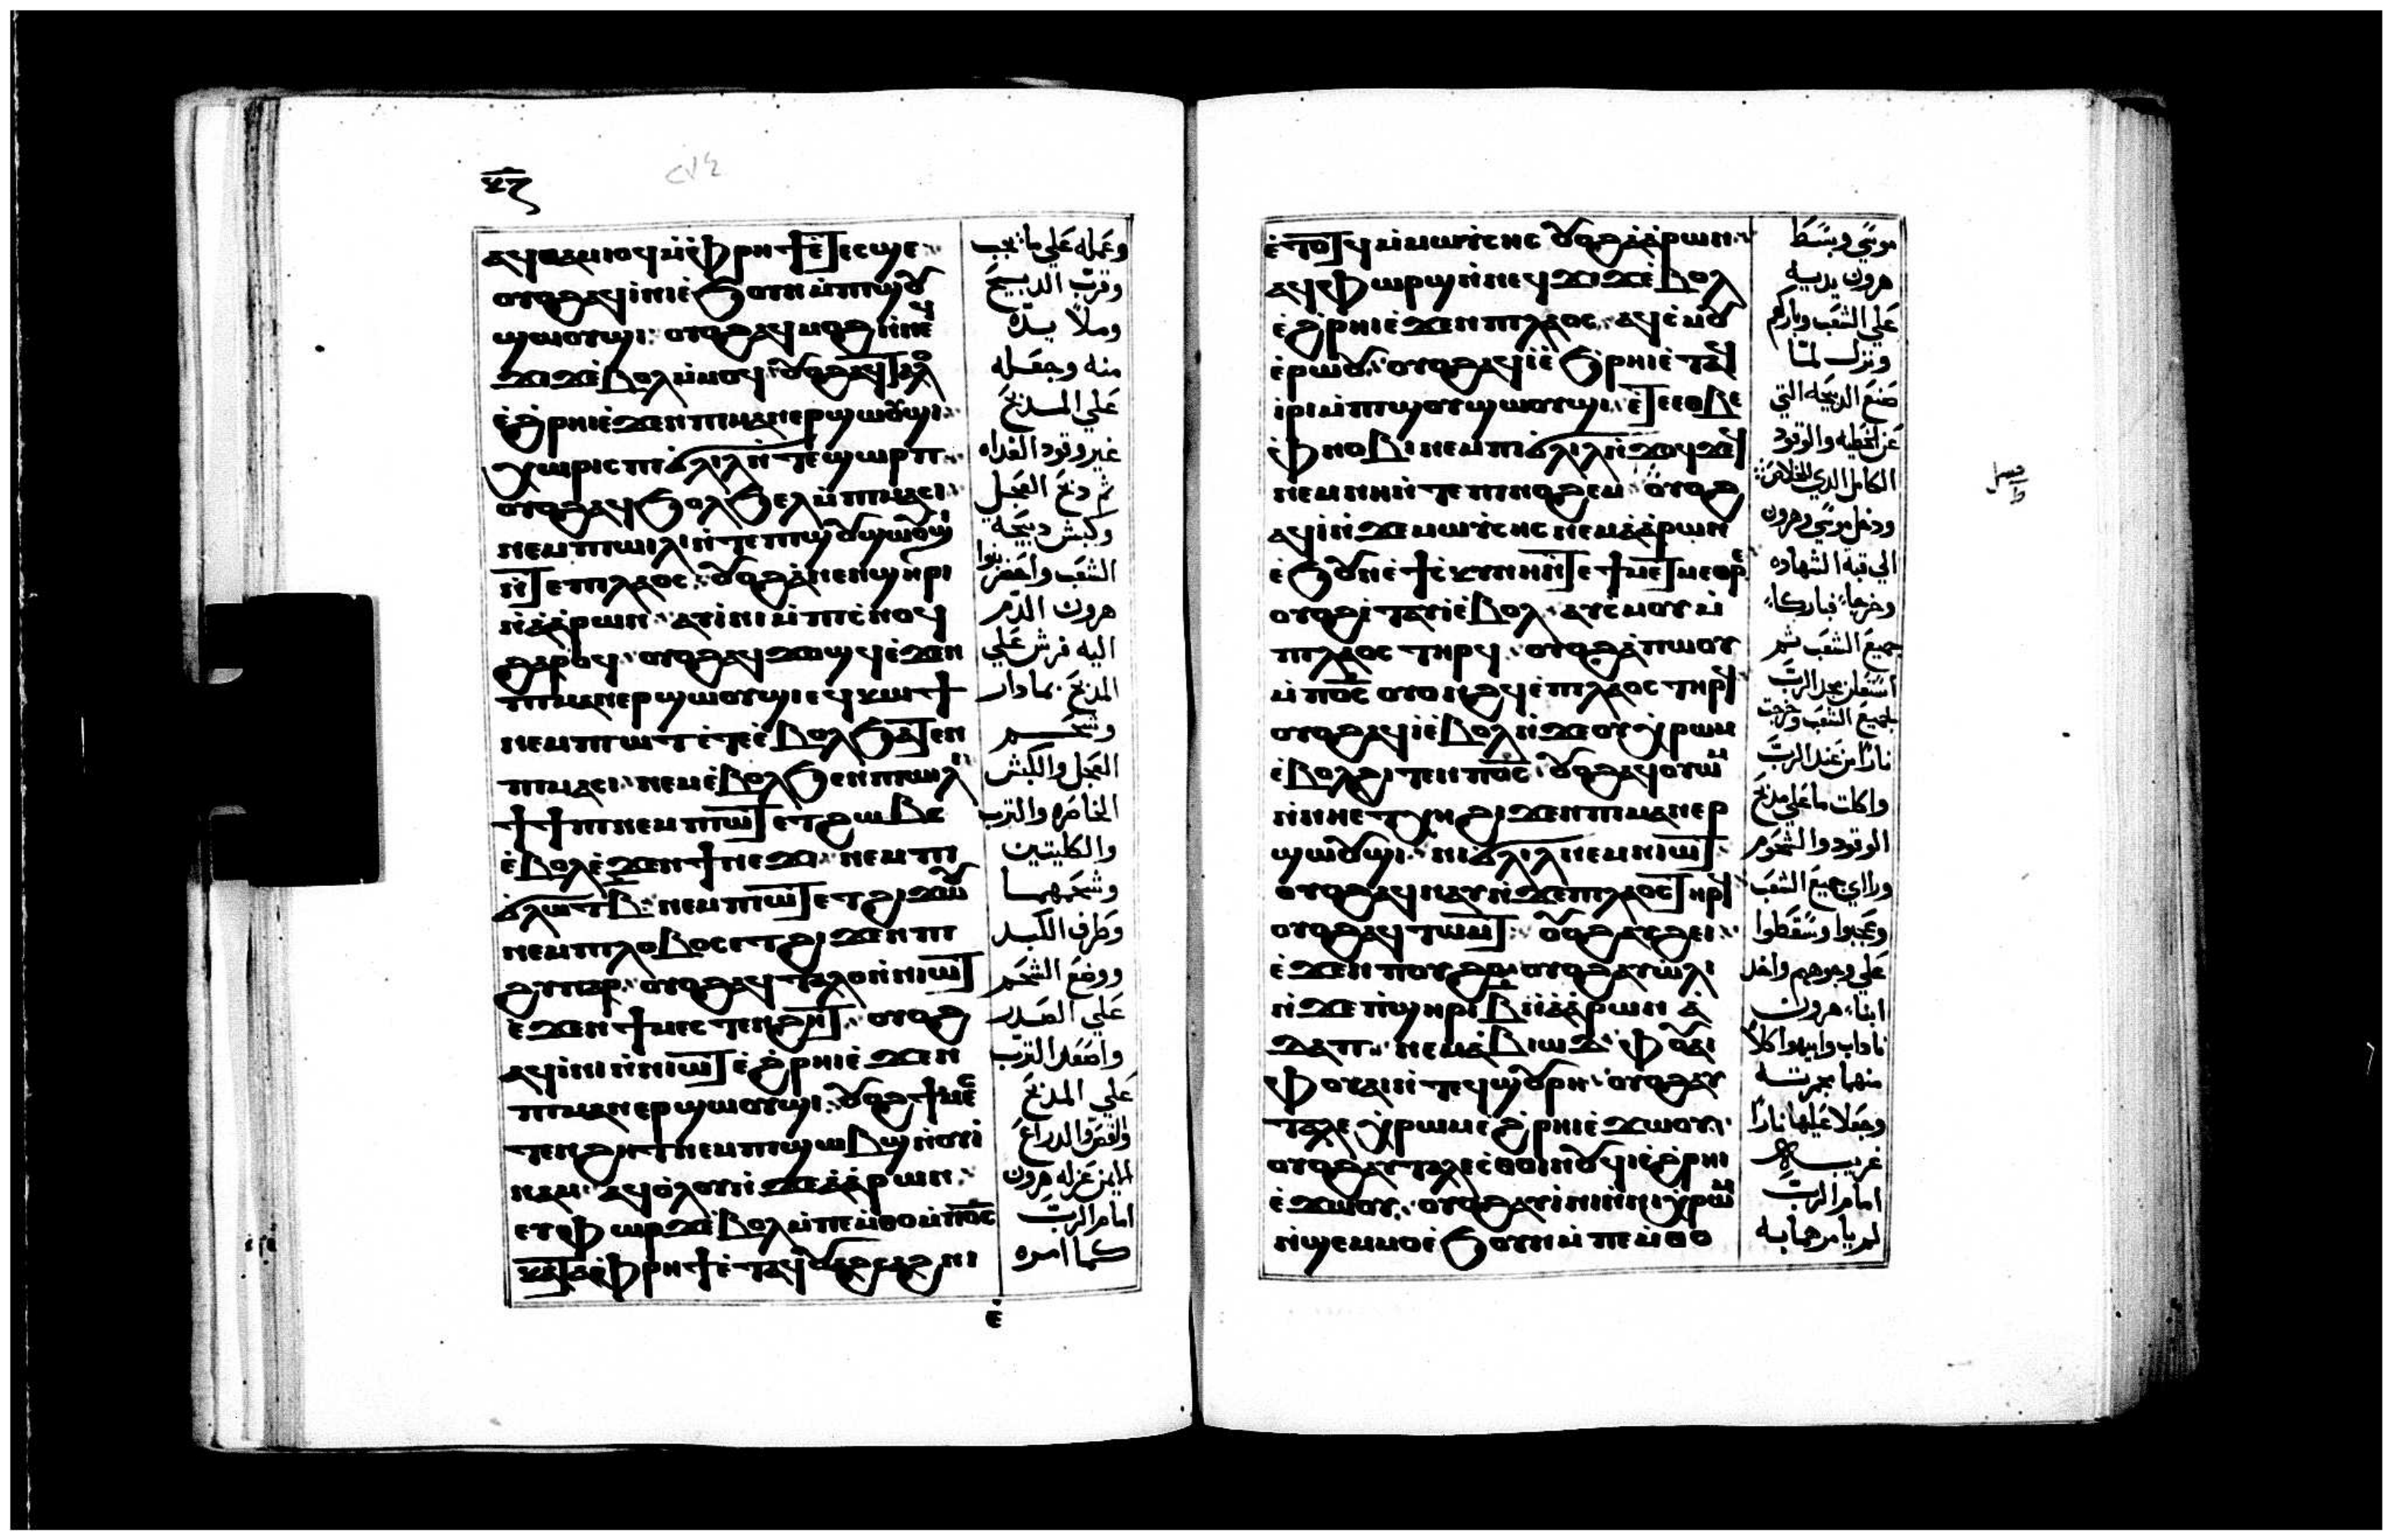 ⲁϥⲑⲁⲙⲓⲟϥ ⲙ̇ⲫⲣⲏϯ ⲉ̇ⲧⲉⲥϣⲉ
ⲟⲩⲟϩ ⲁϥⲓⲛⲓ ⲉ̇ϧⲟⲩⲛ ⲙ̇ⲡⲓϣⲟⲩ
ϣⲱⲟⲩϣⲓ ⲟⲩⲟϩ ⲁϥⲙⲟϩ ⲛ̇ⲛⲉϥ
ϫⲓϫ ⲉ̇ⲃⲟⲗ ⲙ̇ⲙⲟϥ ⲟⲩⲟϩ ⲁϥⲧⲁⲗⲟ
ⲉ̇ϩ̇ⲣⲏⲓ ⲉ̇ϫⲉⲛ ⲡⲓⲙⲁⲛⲉⲣϣⲱⲟⲩϣⲓ
ⲭⲱⲣⲓⲥ ⲡⲓϭ̇ⲗⲓⲗ ⲛ̇ⲧⲉ ϣⲱⲣⲡ
ⲟⲩⲟϩ ⲁϥϧⲟⲗϧⲉⲗ ⲙ̇ⲡⲓⲙⲁⲥⲓ
ⲛⲉⲙ ⲡⲓⲱⲓⲗⲓ ⲛ̇ⲧⲉ ⲡⲓϣⲟⲩϣⲱⲟⲩϣⲓ
ⲛ̇ⲧⲉ ⲡⲓⲗⲁⲟⲥ ⲟⲩⲟϩ ⲁ̇ ⲛⲉⲛϣⲏⲣⲓ
ⲛ̇ⲁ̇ⲁ̇ⲣⲱⲛ ⲁⲩⲓ̇ⲛⲓ ⲙ̇ⲡⲓⲥ̇ⲛⲟϥ
ϩⲁⲣⲟϥ ⲟⲩⲟϩ ⲁϥϫⲟϣϥ ⲉ̇ϫⲉⲛ
ⲡⲓⲙⲁⲛⲉⲣϣⲱⲟⲩϣⲓ ⲉϥⲕⲱϯ
ⲛⲉⲙ ⲡⲓⲱⲧ ⲉ̇ⲧⲉ ⲉ̇ⲃⲟⲗϧⲁⲧⲉⲛ
ⲡⲓⲙⲁⲥⲓ ⲛⲉⲙ ⲉ̇ⲃⲟⲗϧⲉⲛ ⲡⲓⲱⲓⲗⲓ
ϯϯⲡⲓ ⲛⲉⲙ ⲡⲓⲱⲧ ⲉⲧϩⲱⲃⲥ
ⲉ̇ⲃⲟⲗ ⲉ̇ϫⲉⲛ ϯⲛⲉϫⲓ ⲛⲉⲙ ϯ
ϭ̇ⲗⲱⲧ ⲃ̅ ⲛⲉⲙ ⲡⲓⲱⲧ ⲉⲧϩⲓϫⲱⲟⲩ
ⲛⲉⲙ ⲡⲓⲗⲟⲃⲟⲥ ⲉⲧϩⲓϫⲉⲛ ⲡⲓ
ϩⲩⲡⲁⲣ ⲟⲩⲟϩ ⲁϥⲧⲁⲗⲟ ⲛ̇ⲛⲓⲱⲧ
ⲉ̇ϫⲉⲛ ϯⲙⲉⲥⲧⲉⲛϩⲏⲧ ⲟⲩⲟϩ
ⲁϥⲓⲛⲓ ⲛ̇ⲛⲓⲱⲧ ⲉ̇ϩ̇ⲣⲏⲓ ⲉ̇ϫⲉⲛ
ⲡⲓⲙⲁⲛⲉⲣϣⲱⲟⲩϣⲓ ⲟⲩⲟϩ ϯⲙⲉⲥ
ⲧⲉⲛϩⲏⲧ ⲛⲉⲙ ⲡⲓϣⲱⲃϣ ⲛ̇ⲟⲩⲓ̇
ⲛⲁⲙ ⲁϥⲟ̇ⲗⲟⲩ ⲛ̇ϫⲉ ⲁ̇ⲁ̇ⲣⲱⲛ
ⲉⲩⲫⲱⲣϫ ⲉ̇ⲃⲟⲗ ⲙ̇ⲡⲉⲙ̇ⲑⲟ ⲙ̇ⲡⲟ̅ⲥ̅
ⲕⲁⲧⲁ ⲫⲣⲏϯ ⲉ̇ⲧⲁϥⲟⲩⲁϩⲥⲁϩⲛⲓ
ⲉ̇
وعمله علي ما يجب
وقرب الدبيح
وملا يده
منه وجعله
علي المدبح
غير وقود الغداه
ثم دبح العجل
وكبش دبيحة
الشعب واحضر بنوا
هرون الدم
اليه فرش علي
المدبح بمادار
وشحم
العجل والكبش
الخاصره والترب
والكليتين
وشحمهما
وطرف الكبد
ووضع الشحم
علي الصدر
واصعد الترب
علي المدبح
والقص والدراع
الايمن عزله هرون
امام الرب
كما امره
ⲉ̇ⲧⲟⲧϥ ⲙ̇ⲙⲱⲩ̇ⲥⲏⲥ ⲟⲩⲟϩ ⲁ̇ⲁ̇ⲣⲱⲛ
ⲁϥⲫⲱⲣϣ ⲛ̇ⲛⲉϥϫⲓϫ ⲉ̇ⲃⲟⲗ
ⲉ̇ϩ̇ⲣⲏⲓ ⲉ̇ϫⲉⲛ ⲡⲓⲗⲁⲟⲥ ⲁϥⲥ̇ⲙⲟⲩ
ⲉ̇ⲣⲱⲟⲩ ⲟⲩⲟϩ ⲁϥⲓ̇ ⲉ̇ϧ̇ⲣⲏⲓ ⲉ̇ⲧⲁϥ
ⲓ̇ⲣⲓ ⲙ̇ⲡⲓϣⲟⲩϣⲱⲟⲩϣⲓ ⲉ̇ⲧⲉ ⲉⲑⲃⲉ
ⲫ̇ⲛⲟⲃⲓ ⲛⲉⲙ ⲡⲓϭ̇ⲗⲓⲗ ⲛ̇ϫⲟϥϫⲉϥ
ⲛⲉⲙ ⲛⲏ ⲛ̇ⲧⲉ ⲡⲓⲛⲟϩⲉⲙ ⲟⲩⲟϩ
ⲁϥⲓ̇ ⲛ̇ϫⲉ ⲙⲱⲩ̇ⲥⲏⲥ ⲛⲉⲙ ⲁ̇ⲁ̇ⲣⲱⲛ
ⲉ̇ϧⲟⲩⲛ ⲉ̇ϯⲥ̇ⲕⲩⲛⲏ ⲛ̇ⲧⲉ ϯⲙⲉⲧⲙⲉⲑⲣⲉ
ⲟⲩⲟϩ ⲉ̇ⲧⲁⲩⲓ̇ ⲉ̇ⲃⲟⲗ ⲁⲩⲥ̇ⲙⲟⲩ ⲙ̇
ⲡⲓⲗⲁⲟⲥ ⲧⲏⲣϥ ⲟⲩⲟϩ ⲁ̇ ⲡⲱⲟⲩ
ⲙ̇ⲡⲟ̅ⲥ̅ ⲟⲩⲟⲛϩϥ ⲉ̇ⲡⲓⲗⲁⲟⲥ ⲧⲏⲣϥ
ⲟⲩⲟϩ ⲁϥⲓ̇ ⲉ̇ⲃⲟⲗ ⲛ̇ϫⲉ ⲟⲩⲭ̇ⲣⲱⲙ
ⲉ̇ⲃⲟⲗϩⲓⲧⲉⲛ ⲡⲟ̅ⲥ̅ ⲟⲩⲟϩ ⲁϥⲟⲩⲱⲙ
ⲛ̇ⲛⲏ ⲉⲧⲭⲏ ϩⲓϫⲉⲛ ⲡⲓⲙⲁⲛⲉⲣ
ϣⲱⲟⲩϣⲓ ⲛⲓϭ̇ⲗⲓⲗ ⲛⲉⲙ ⲛⲓⲱⲧ
ⲟⲩⲟϩ ⲁϥⲛⲁⲩ ⲛ̇ϫⲉ ⲡⲓⲗⲁⲟⲥ ⲧⲏⲣϥ
ⲟⲩⲟϩ ⲁϥⲧⲱⲙⲧ ⲟⲩⲟϩ ⲁⲩϩⲉⲓ
ⲉ̇ϫⲉⲛ ⲡⲟⲩϩⲟ ⲟⲩⲟϩ ⲁⲩⲱ̇ⲗⲓ
ⲛ̇ϫⲉ ⲡ̇ϣⲏⲣⲓ ⲃ̅ ⲛ̇ⲁ̇ⲁ̇ⲣⲱⲛ ⲁ̇
ϫⲁⲡ ⲛⲉⲙ ⲁ̇ⲃⲓⲱϫ ⲫⲟⲩⲁⲓ
ⲫⲟⲩⲁⲓ ⲛ̇ⲧⲉϥϣⲟⲩⲣⲏ ⲟⲩⲟϩ ⲁⲩ
ⲧⲁⲗⲉ ⲭ̇ⲣⲱⲙ ⲉ̇ϩ̇ⲣⲏⲓ ⲉ̇ϫⲱⲟⲩ
ⲟⲩⲟϩ ⲁⲩⲧⲁⲗⲉ ⲥ̇ⲑⲟⲓⲛⲟⲩϥⲓ ⲉ̇ϩ̇ⲣⲏⲓ
ⲉ̇ϫⲱⲟⲩ ⲟⲩⲟϩ ⲁⲩⲓ̇ⲛⲓ ⲛ̇ⲛⲓⲭ̇ⲣⲱⲙ
ⲛ̇ϣⲉⲙⲙⲟ ⲉ̇ϧⲟⲩⲛ ⲙ̇ⲡⲉⲙ̇ⲑⲟ
موسي وبسط
هرون يديه
علي الشعب وباركهم
ونزل لما
صنع الدبيحه التي
عن الخطيه والوقود
الكامل الدي للخلاص
ودخل موسي وهرون
الي قبة الشهاده
وخرجا فباركا
جميع الشعب ثم
استعلن مجد الرب
لجميع الشعب وخرجت
نارا من عند الرب
واكلت ما علي مدبح
الوقود والشحوم
وراي جميع الشعب
وعجبوا وسقطوا
علي وجوههم واخد
ابنا هرون
ناداب وابيهوا كلا
منهما مجمرته
وجعلا عليها نارا
غريبه
امام الرب
لم يامرهما به